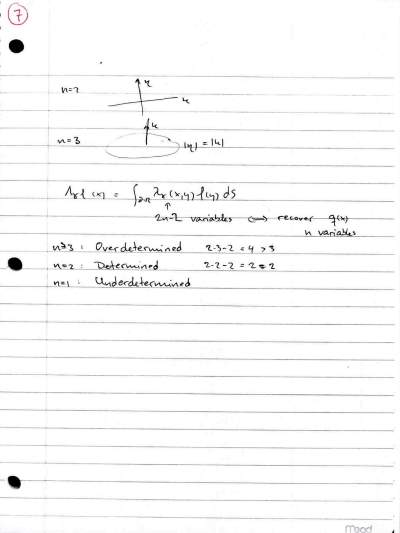 7
n=2
η
k
n=3
k
|η| = |k|
Λ_γ f (x) = ∫_∂Ω λ_γ(x,y) f(y) dS
↑
2n-2 variables ↔ recover q(x)
n variables
n≥3 : Overdetermined 2·3-2 = 4 > 3
n=2 : Determined 2·2-2 = 2 = 2
n=1 : Underdetermined